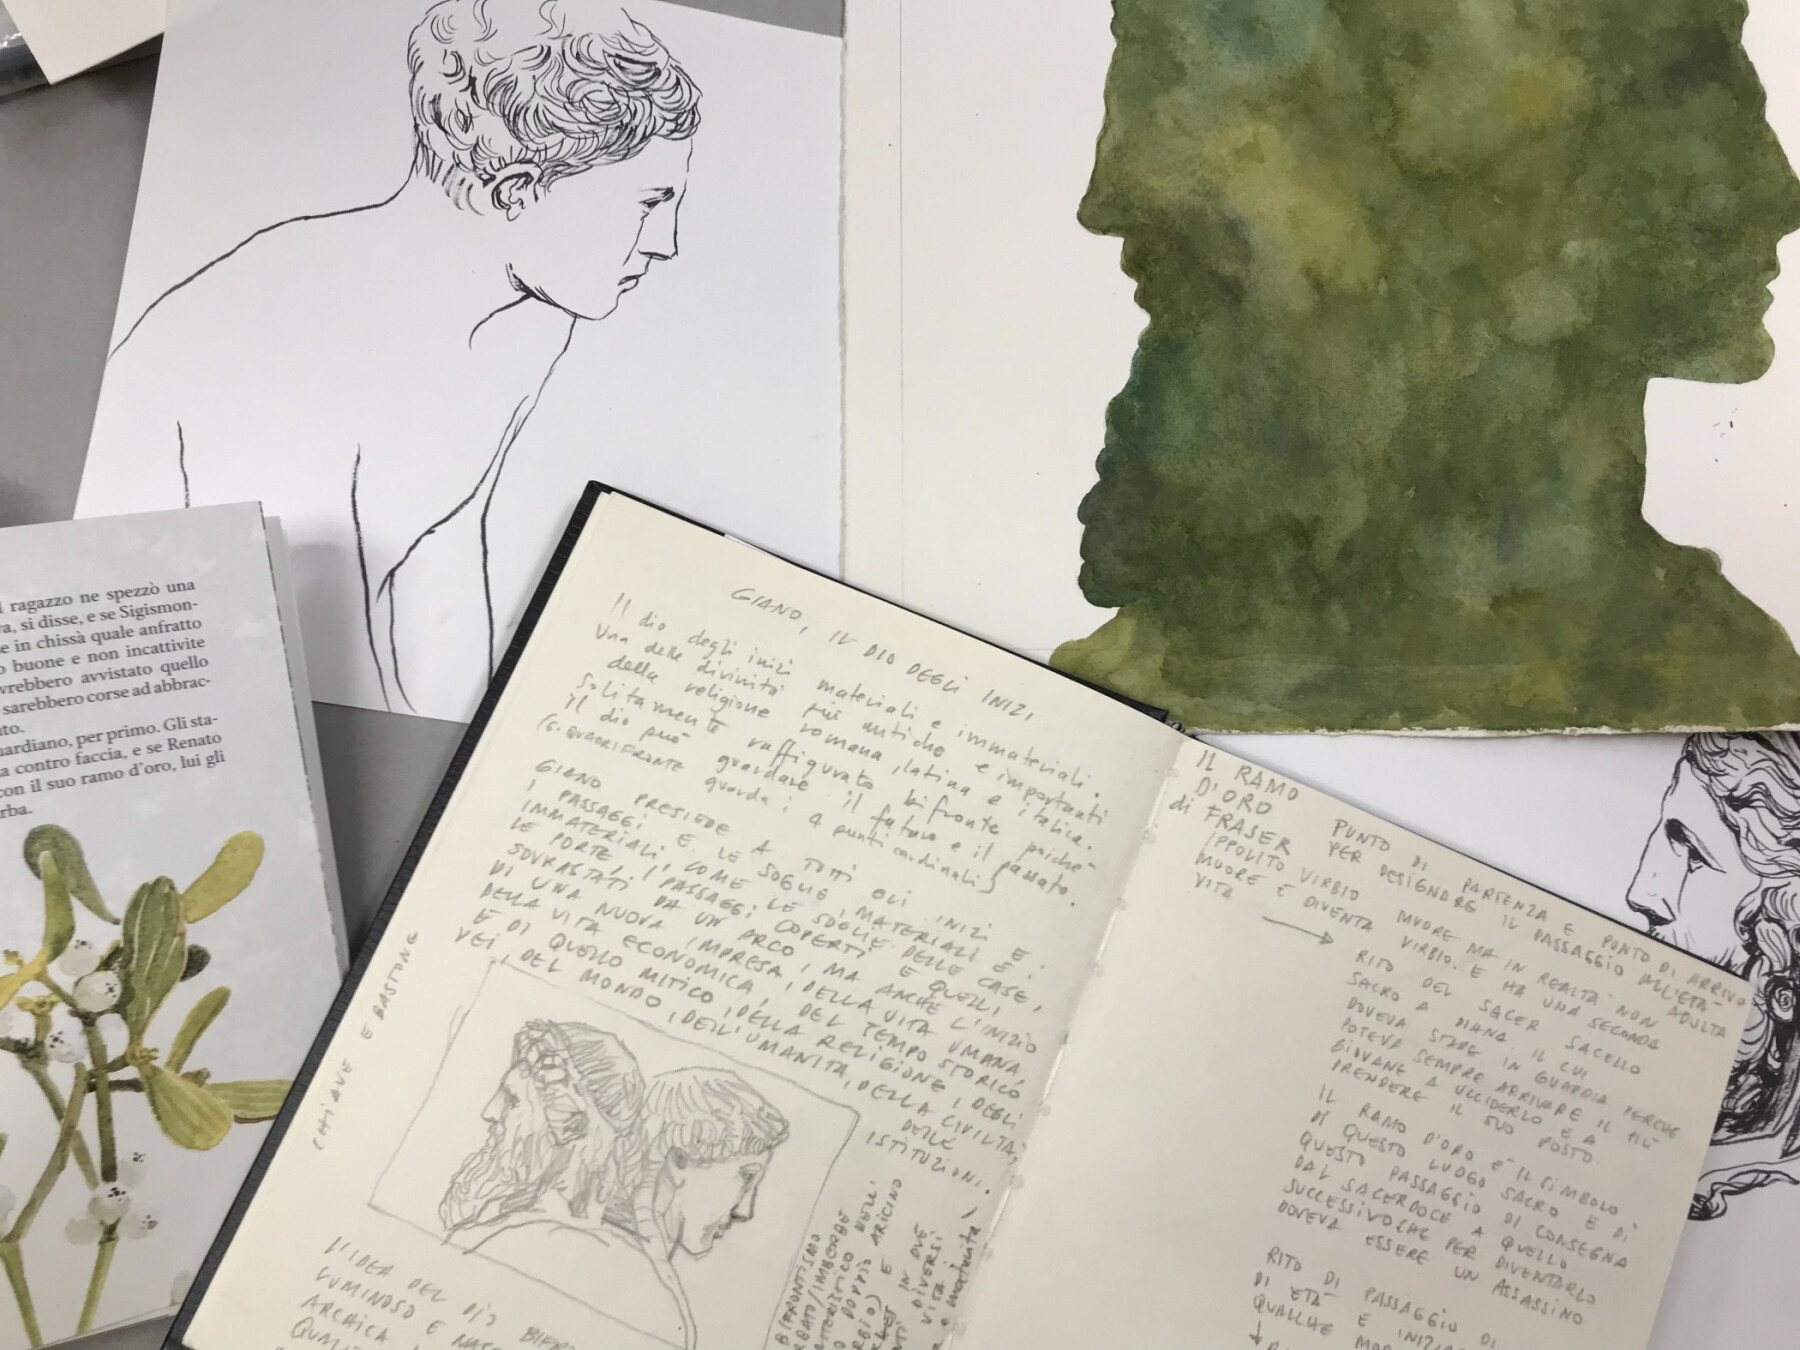 ragazzo ne spezzò una
si disse, e se Sigismon-
e in chissà quale anfratto
buone e non incattivite
vrebbero avvistato quello
sarebbero corse ad abbrac-
uto.
uardiano, per primo. Gli sta-
a contro faccia, e se Renato
con il suo ramo d'oro, lui gli
rba.
GIANO, IL DIO DEGLI INIZI
Il dio degli inizi materiali e immateriali.
Una delle divinità più antiche e importanti
della religione romana, latina e italica.
Solitamente raffigurato bifronte poiché
il dio può guardare il futuro e il passato.
(G. QUADRIFRONTE guarda i 4 punti cardinali)
GIANO PRESIEDE A TUTTI GLI INIZI E
I PASSAGGI E LE SOGLIE, MATERIALI E
IMMATERIALI, COME LE SOGLIE DELLE CASE,
LE PORTE, I PASSAGGI COPERTI E QUELLI
SOVRASTATI DA UN ARCO, MA ANCHE L'INIZIO
DI UNA NUOVA IMPRESA, DELLA VITA UMANA,
DELLA VITA ECONOMICA, DEL TEMPO STORICO
E DI QUELLO MITICO, DELLA RELIGIONE, DEGLI
DEI, DEL MONDO, DELL'UMANITÀ, DELLA CIVILTÀ,
DELLE
ISTITUZIONI.
CHIAVE E BASTONE
BIFRONTISMO
BATO/IMBERBE
DOPPIO
E ARICINO
IN DUE
DIVERSI
VITA
e maturità)
L'IDEA DEL DIO
LUMINOSO E
ARCAICA
IL RAMO
D'ORO
di FRASER
PUNTO DI PARTENZA E PUNTO DI ARRIVO
PER DESIGNARE IL PASSAGGIO ALL'ETÀ ADULTA
IPPOLITO VIRBIO MUORE MA IN REALTÀ NON
MUORE E DIVENTA VIRBIO E HA UNA SECONDA
VITA →
RITO DEL SACER SACELLO
SACRO A DIANA IL CUI
DOVEVA STARE IN GUARDIA PERCHÉ
POTEVA SEMPRE ARRIVARE IL PIÙ
GIOVANE A UCCIDERLO E A
PRENDERE IL SUO POSTO.
IL RAMO D'ORO È IL SIMBOLO
DI QUESTO LUOGO SACRO E DI
QUESTO PASSAGGIO DI CONSEGNA
DAL SACERDOCE A QUELLO
SUCCESSIVO CHE PER DIVENTARLO
DOVEVA ESSERE UN ASSASSINO
RITO DI PASSAGGIO DI
DI ETÀ E
QUALCHE